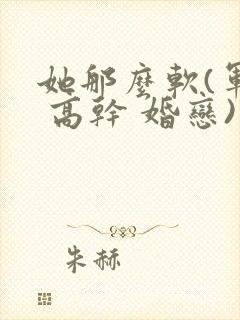 她那麼軟(軍
高幹 婚戀)
朱赫